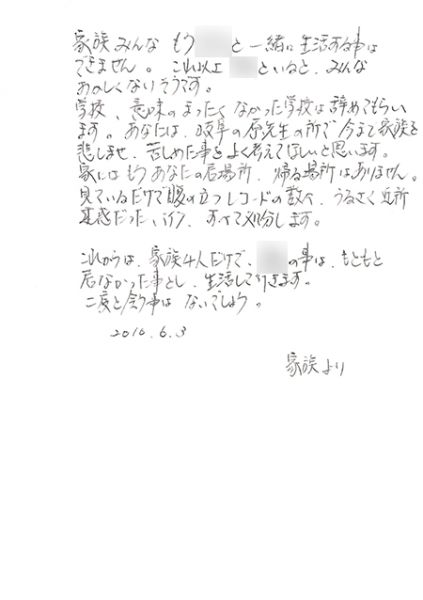 家族みんな もう と一緒に生活する事は
できません。これ以上 といると、みんな
おかしくなりそうです。
学校、意味のまったくなかった学校は辞めてもらい
ます。あなたは、岐阜の原先生の所で今まで家族を
悲しませ、苦しめた事をよく考えてほしいと思います。
家にはもうあなたの居場所、帰る場所はありません。
見ているだけで腹の立つレコードの数々、うるさく近所
迷惑だったバイク、すべて処分します。
これからは、家族4人だけで、 の事は、もともと
居なかった事とし、生活して行きます。
二度と会う事はないでしょう。
2010.6.3
家族より